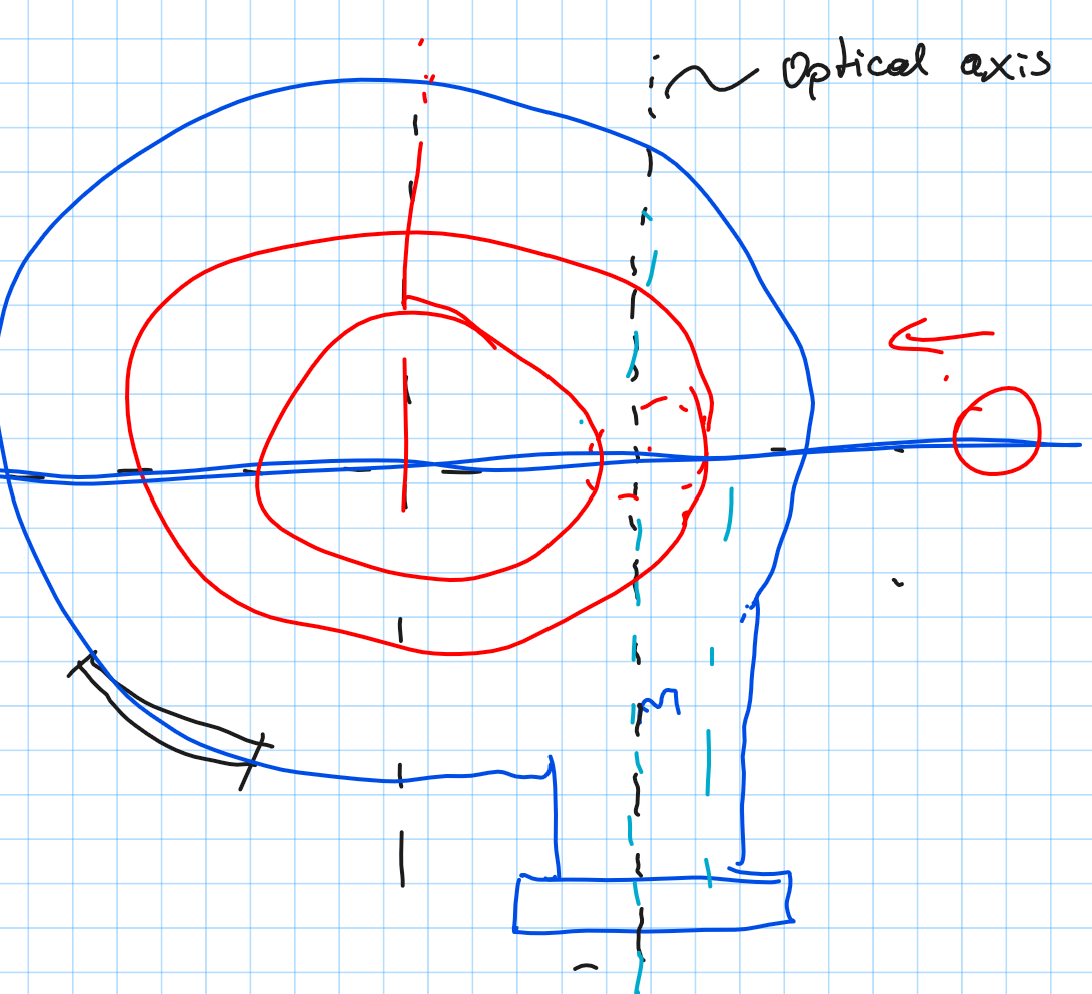 Optical axis